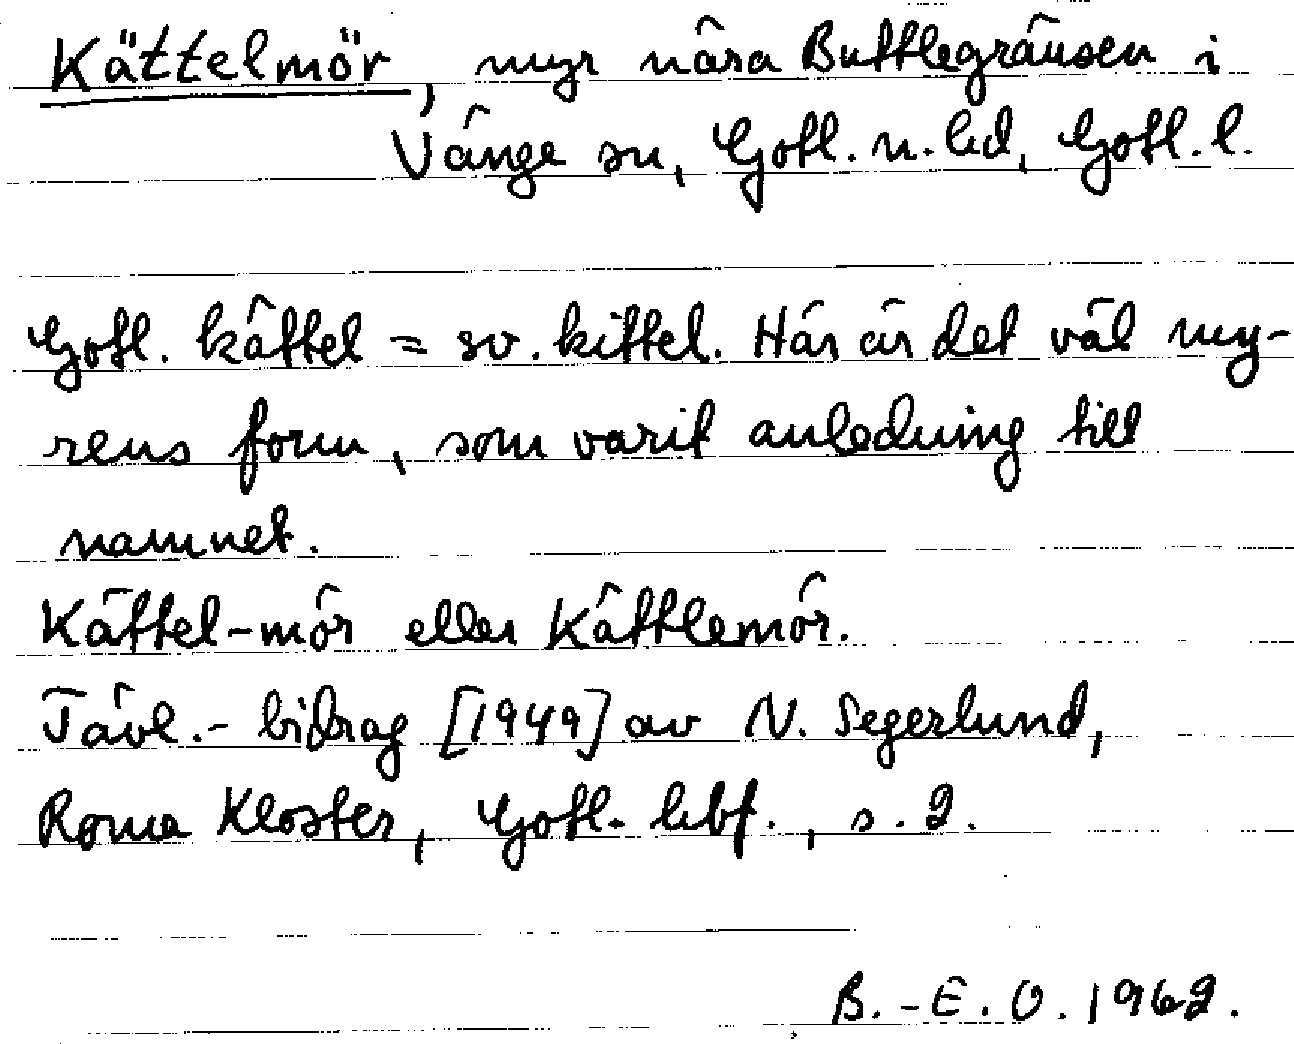 Kättelmör, myr nära Buttlegränsen i
Vänge sn, Gotl. n. hd, Gotl. l.
Gotl. kättel = sv. kittel. Här är det väl my-
rens form, som varit anledning till
namnet.
Kättel-mör eller Kättlemör.
Tävl.- bidrag [1949] av N. Segerlund,
Roma Kloster, Gotl. hbf., s. 2.
B.-E. O. 1962.